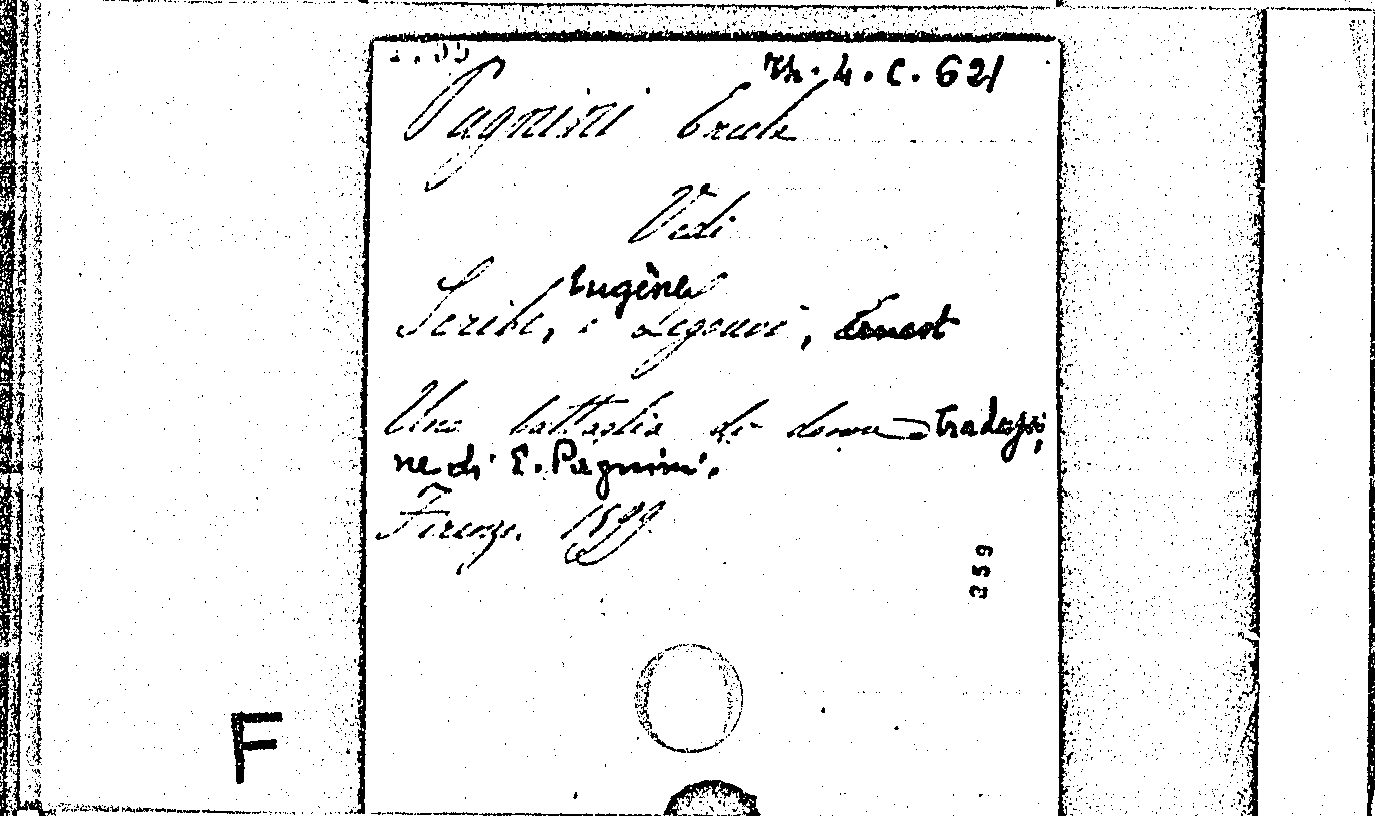 Th. 4. C. 621
Pagnini Ercole
Vedi
Eugène
Scribe, e Legouvé, Ernest
Una battaglia di donne traduzio
ne di E. Pagnini.
Firenze. 1899
359
F